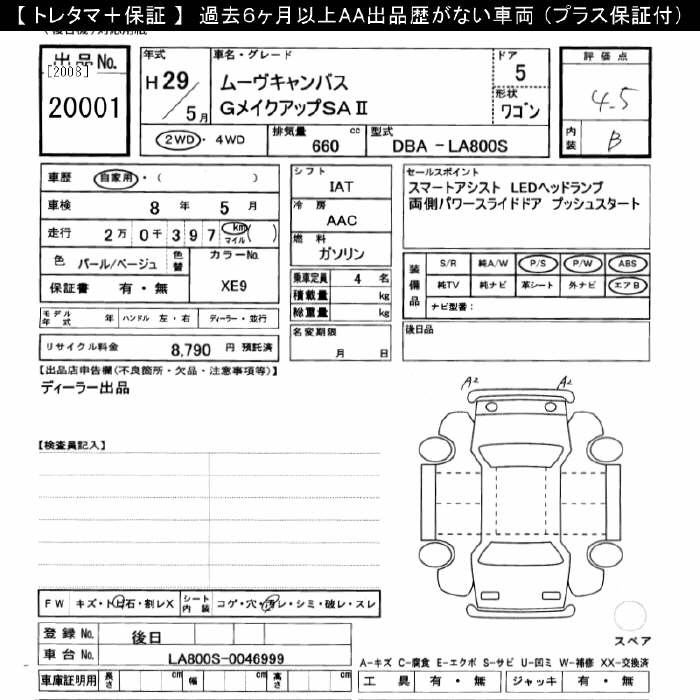 【 トレタマ＋保証 】 過去6ヶ月以上AA出品歴がない車両 （プラス保証付）
出品 No.
[2008]
20001
年式
H 29
／ 5 月
車名・グレード
ムーヴキャンバス
GメイクアップSAⅡ
ドア
5
形状
ワゴン
2WD ・ 4WD
排気量 cc
660
型式
DBA －LA800S
評価点
4.5
内装
B
車歴 自家用 ・（ ）
車検 8 年 5 月
走行 2 万 0 千 3 9 7 （km マイル）
色 パール/ベージュ 色替 カラーNo.
保証書 有 ・ 無 XE9
モデル年式 年 ハンドル 左 ・ 右 ディーラー ・ 並行
リサイクル料金 8,790 円 預託済
シフト
IAT
冷房
AAC
燃料
ガソリン
乗車定員 4 名
積載量 kg
総重量 kg
名変期限
月 日
セールスポイント
スマートアシスト LEDヘッドランプ
両側パワースライドドア プッシュスタート
装備品
S/R 純A/W P/S P/W ABS
純TV 純ナビ 革シート 外ナビ エアB
ナビ型番：
後日品
【出品店申告欄(不良箇所・欠品・注意事項等)】
ディーラー出品
【検査員記入】
A2 A2
FW キズ・トビ石・割レX シート内装 コゲ・穴・汚レ・シミ・破レ・スレ
登録 No. 後日
車台 No. LA800S-0046999
車庫証明用 長さ cm 幅 cm 高さ cm
スペア
A-キズ C-腐食 E-エクボ S-サビ U-凹ミ W-補修 XX-交換済
工具 有 ・ 無 ジャッキ 有 ・ 無